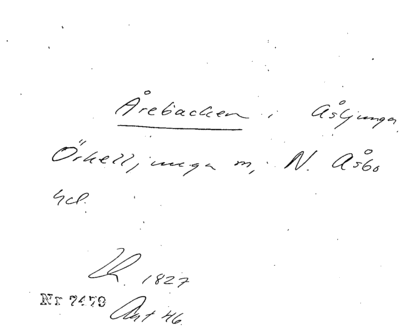 Årebacken i Åsljunga,
Örkelljunga m, N. Åsbo
hd.
1827
Nr 7479
Ant 46